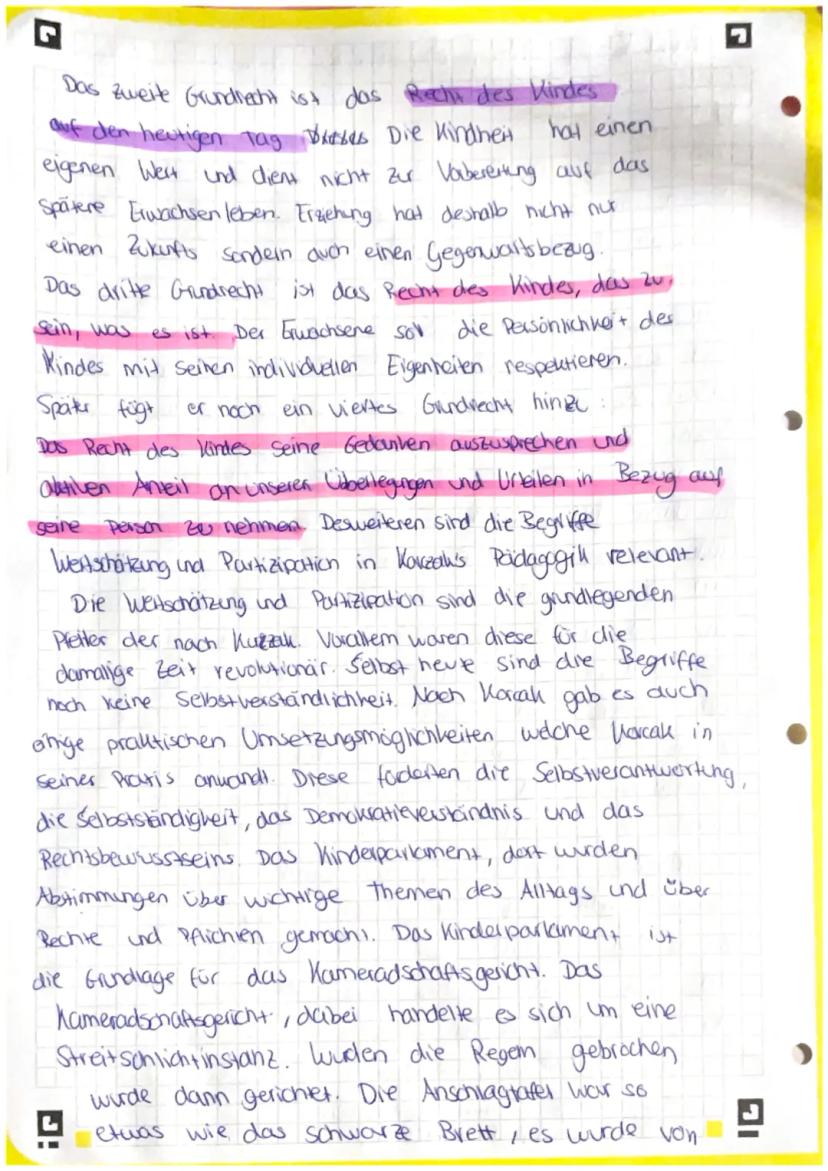 Das zweite Grundrecht ist das Recht des Kindes
auf den heutigen Tag Die Kindheit hat einen
eigenen Wert und dient nicht zur Vobereitung auf das
Spätere Erwachsenleben. Erziehung hat deshalb nicht nur
einen Zukunfts sondern auch einen Gegenwartsbezug.
Das dritte Grundrecht ist das Recht des Kindes, das zu
sein, was es ist. Der Erwachsene soll die Persönlichkeit des
Kindes mit seinen individuellen Eigenheiten respektieren.
Später fügt er noch ein viertes Grundrecht hinzu:
Das Recht des Kindes seine Gedanken auszusprechen und
aktiven Anteil an unseren Überlegungen und Urteilen in Bezug auf
seine Person zu nehmen. Desweiteren sind die Begriffe
Wertschätzung und Partizipation in Korzcak's Pädagogik relevant.
Die Wertschätzung und Partizipation sind die grundlegenden
Pfeiler der nach Kurzzak. Vorallem waren diese für die
damalige Zeit revolutionär. Selbst heute sind die Begriffe
noch keine Selbstverständlichkeit. Nach Korcak gab es auch
einige praktischen Umsetzungsmöglichkeiten welche Korcak in
seiner Praxis anwandt. Diese forderten die Selbstverantwortung,
die Selbstständigkeit, das Demokratieverständnis und das
Rechtsbewusstseins. Das Kinderparlament, dort wurden
Abstimmungen über wichtige Themen des Alltags und über
Rechte und Pflichten gemacht. Das Kinderparlament ist
die Grundlage für das Kameradschaftsgericht. Das
Kameradschaftsgericht, dabei handelte es sich um eine
Streitschlichtinstanz. Wurden die Regeln gebrochen
wurde dann gerichtet. Die Anschlagtafel war so
etwas wie das schwarze Brett, es wurde von